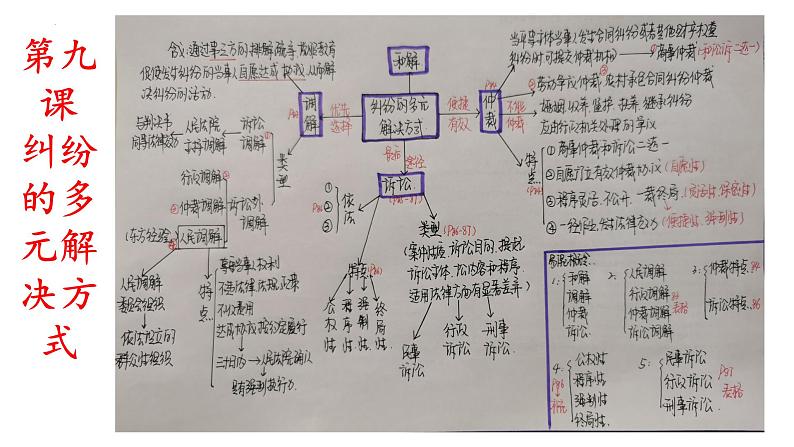 第九
课
纠纷
的多
元解
决方
式
含义:通过第三方的排解疏导、说服教育
促使发生纠纷的当事人自愿达成协议,从而解
决纠纷的活动.
和解
纠纷的多元
解决方式.
优先
选择
便捷
有效
最后
途径
调解
仲裁
诉讼.
当平等主体当事人发生合同纠纷或者其他财产权益
纠纷时可提交仲裁机构
商事仲裁(和诉讼二选一)
劳动争议仲裁
农村承包合同纠纷仲裁
不能
仲裁
婚姻、收养、监护、扶养、继承纠纷
应由行政机关处理的争议
特点
①商事仲裁和诉讼二选一
②自愿订立有效仲裁协议(自愿性)
③程序灵活、不公开、一裁终局.(灵活性、保密性)
④一经作出,发生法律效力(便捷性、强制性)
类型
诉讼
调解
人民法院
主持调解
与判决书
同等法律效力
诉讼外
调解
行政调解
仲裁调解
人民调解
(东方经验)
人民调解
委员会组织
依法设立的
群众性组织
特点
尊重当事人权利
不违法律、法规、政策
不收费用
达成协议,按约定履行
三十日内
人民法院确认
具有强制执行力.
依法
①
②
③
特点
(P86)
公权性
程序性
强制性
终局性
类型(P86-87)
(案件性质、诉讼目的、提起
诉讼主体、诉讼内容和程序、
适用法律方面有显著差异)
民事
诉讼
行政
诉讼
刑事
诉讼
易混概念:
1:
和解
调解
仲裁
诉讼.
2:
人民调解
行政调解
仲裁调解
诉讼调解
表格
3:
仲裁特点.84
诉讼特点.86
4:
P86
公权性
程序性
强制性
终局性.
5:
民事诉讼
行政诉讼
刑事诉讼.
P87
表格